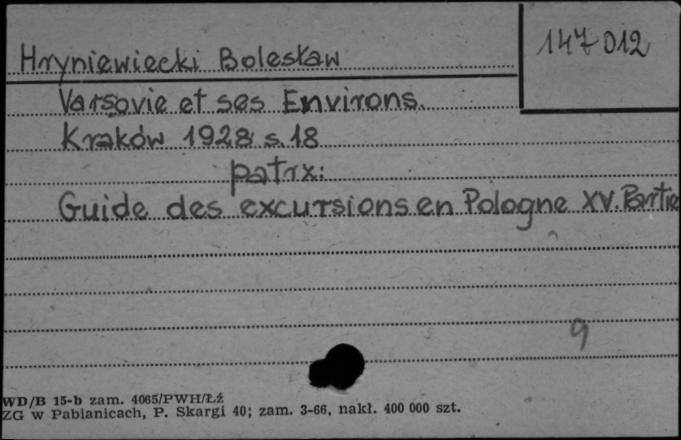 147012
Hryniewiecki Bolesław
Varsovie et ses Environs.
Kraków 1928 s. 18
patrx:
Guide des excursions en Pologne XV. Partie
9
WD/B 15-b zam. 4065/PWH/Łź
ZG w Pabianicach, P. Skargi 40; zam. 3-66, nakł. 400 000 szt.